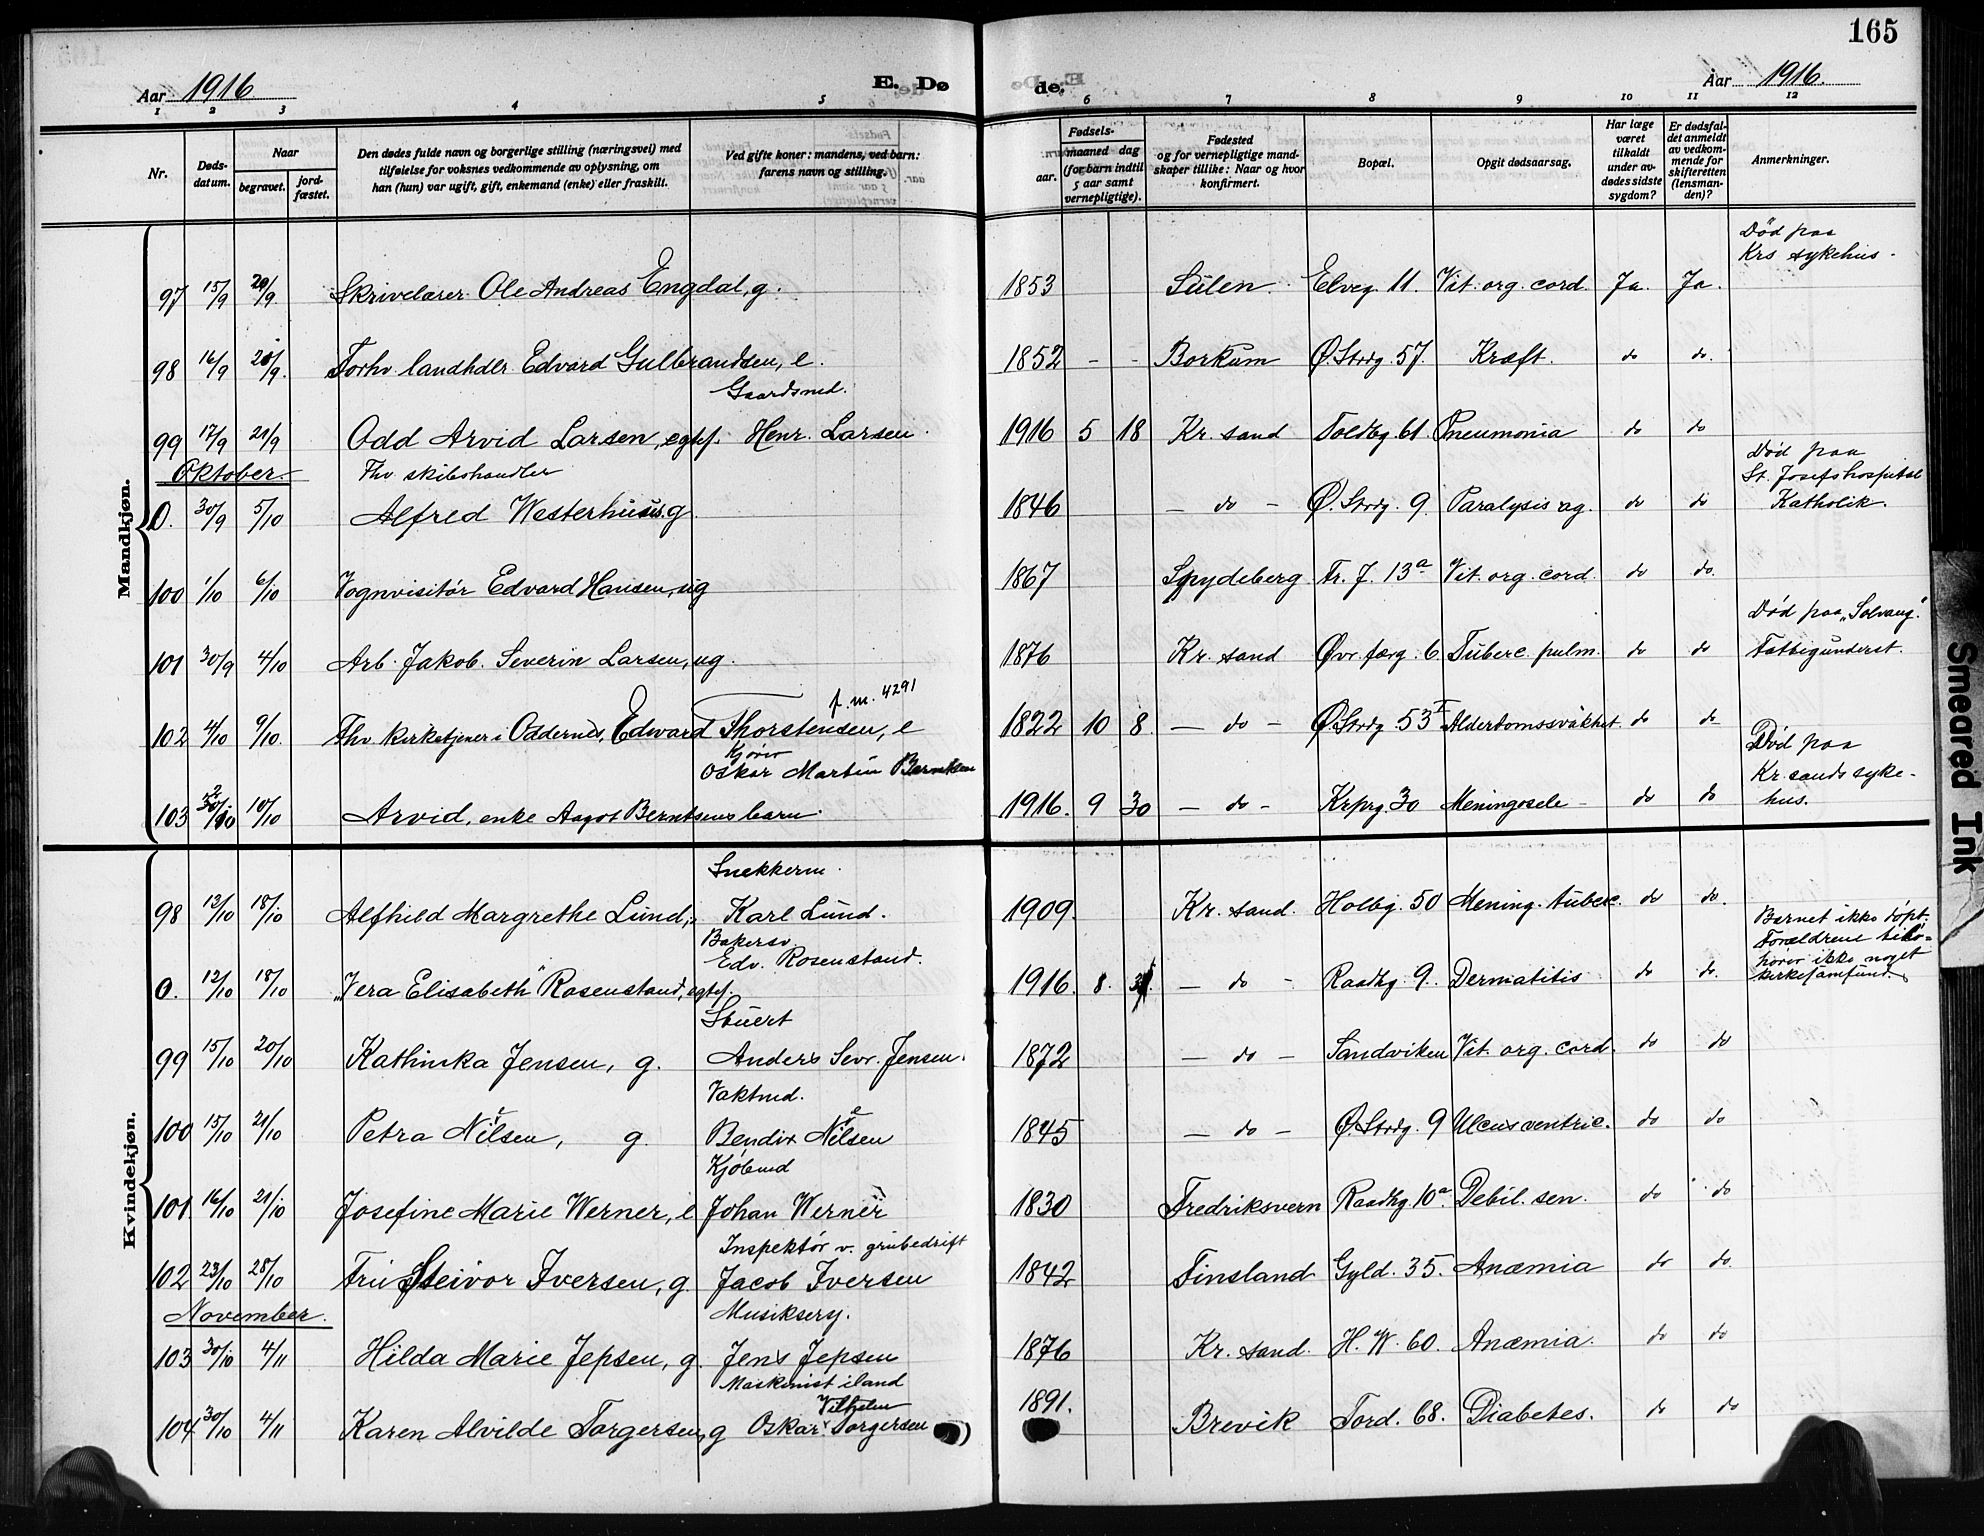 165
Aar 1916 E. Dø de. Aar 1916.
1 2 3 4 5 6 7 8 9 10 11 12
Nr.
Døds-
datum.
Naar
begravet.
jord-
fæstet.
Den dødes fulde navn og borgerlige stilling (næringsvei) med
tilføielse for voksnes vedkommende av oplysning, om
han (hun) var ugift, gift, enkemand (enke) eller fraskilt.
Ved gifte koner: mandens, ved barn:
farens navn og stilling.
Fødsels-
aar.
maaned dag
(for barn indtil
5 aar samt
vernepligtige).
Fødested
og for vernepligtige mand-
skaper tillike: Naar og hvor
konfirmert.
Bopæl.
Opgit dødsaarsag.
Har læge
været
tilkaldt
under av-
dødes sidste
sygdom?
Er dødsfal-
det anmeldt
av vedkom-
mende for
skifteretten
(lensman-
den)?
Anmerkninger.
Mandkjøn.
Død paa
Krs sykehus.
97 15/9 20/9 Skrivelærer Ole Andreas Engdal, g. 1853 Sülen Elveg. 11. Vit. org. cord. Ja. Ja.
98 16/9 20/9. Forhv. landhdlr Edvard Gulbrandsen, e. 1852 - - Borkum Ø. Strdg. 57. Kræft. do do.
Gaardsmd.
99 17/9 21/9 Odd Arvid Larsen, egtef. Henr. Larsen. 1916 5 18 Kr. sand Toldbg. 61. Pneumonia do do
Oktober.
Fhv skibshandler
Død paa
St. Josefshospital
Katholik.
0. 30/9 5/10 Alfred Westerhuus. g 1846 - do - Ø. Strdg. 9. Paralysis ag. do do
100 1/10 6/10 Vognvisitør Edvard Hansen, ug 1867 Spydeberg Fr. J. 13a Vit. org. cord. do do.
Død paa "Solvang".
Fattigunderst.
101 30/9 4/10 Arb. Jakob. Severin Larsen, ug. 1876 Kr. sand Øvr. færg. 6 Tuberc. pulm. do do
f. m. 4291
102 4/10 9/10. Fhv kirketjener i Oddernes, Edward Thorstensen, e 1822 10 8. - do - Ø. Strdg 53 I Alderdomssvakhet. do do
Kjører
Oskar Martin Berntsen
Død paa
Kr. sands syke-
hus.
103 2/10 10/10 Arvid, enke Aagot Berntsens barn. 1916. 9 30 - do - Krprg. 30 Meningosele - do do
Kvindekjøn.
Snekkerm.
98 12/10 18/10 Alfhild Margrethe Lund, Karl Lund. 1909. Kr. sand. Holbg. 50 Mening. tuberc. do do.
Bakersv.
Edv. Rosenstand.
Barnet ikke døpt.
Forældrene tilhø-
hører ikke noget
kirkesamfund.
0. 12/10 18/10 "Vera Elisabeth" Rosenstand, egtef. 1916. 8. - do - Raadhg. 9. Dermatitis do do.
Stuert
99 15/10 20/10 Kathinka Jensen, g. Anders Sevr. Jensen. 1872 - do - Sandviken Vit. org. cord. do do
Vaktmd.
100 15/10 21/10 Petra Nilsen, g. Bendix Nilsen 1845 - do - Ø. Strdg. 9 Ulcus ventric. do do
Kjøbmd
101. 16/10 21/10 Josefine Marie Werner, e Johan Werner 1830 Fredriksvern Raadhg. 10a. Debil. sen. do do
Inspektør v. grubedrift
102 23/10 28/10 Fru Steivor Iversen, g. Jacob Iversen 1842 Finsland Gyld. 35. Anæmia do do.
November.
Musikserg.
103 30/10 4/11 Hilda Marie Jepsen, g. Jens Jepsen 1876 Kr. sand. H. W. 60. Anæmia. do do
Maskinist iland
Vilhelm
104. 30/10 4/11 Karen Alvilde Torgersen, g Oskar Torgersen 1891. Brevik Tord. 68. Diabetes. do do
Smeared Ink